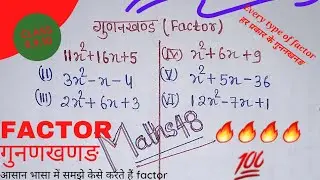 गुणनखण्ड (Factor)
Every type of factor
हर प्रकार के गुणनखण्ड
11x²+16x+5
(II) 3x²-x-4
(III) 2x²+6x+3
(IV) x²+6x+9
(V) x²+5x-36
(VI) 12x²-7x+1
Maths48
FACTOR
गुनणखणङ
आसान भासा में समझे कैसे करते हैं factor
🔥🔥🔥🔥
💯